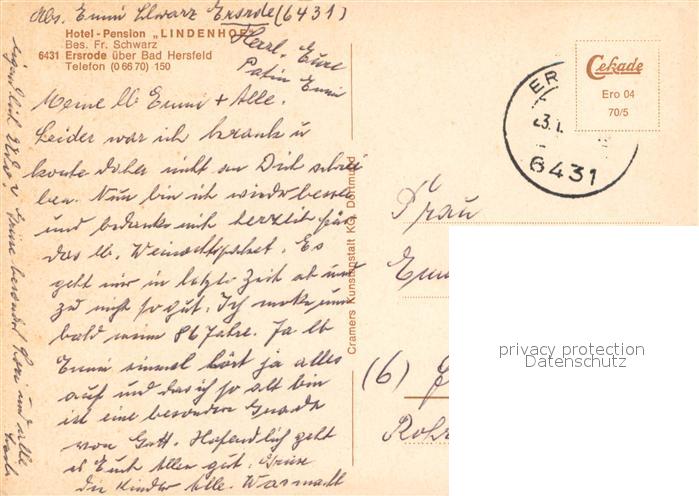 Abs. Emmi Schwarz Ersrode (6431)
Hotel-Pension „LINDENHOF"
Bes. Fr. Schwarz
6431 Ersrode über Bad Hersfeld
Telefon (0 66 70) 150
Herzl. Eure
Patin Emmi
Meine lb. Emmi + Alle.
Leider war ich krank u
konte daher nicht an Dich schrei
ben. Nun bin ich wieder besser
und bedanke mich herzlich für
das lb. Weinachtspaket. Es
geht mir in letzter Zeit ab und
zu nicht so gut. Ich werde nun
bald meine 86 Jahre. Ja lb
Emmi einmal hört ja alles
auf und das ich so alt bin
ist eine besondere Gnade
von Gott. Hofendlich geht
es Euch Allen gut. Grüse
die Kinder Alle. Was macht
eigendlich Udo? Grüse besonders und alle
Cramers Kunstanstalt KG, Dortmund
Cekade
Ero 04
70/5
ER
23.1
6431
Frau
Emm
(6)
Rohr
privacy protection
Datenschutz